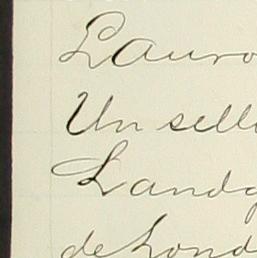 Lauro
Un sell
Land
de Lond